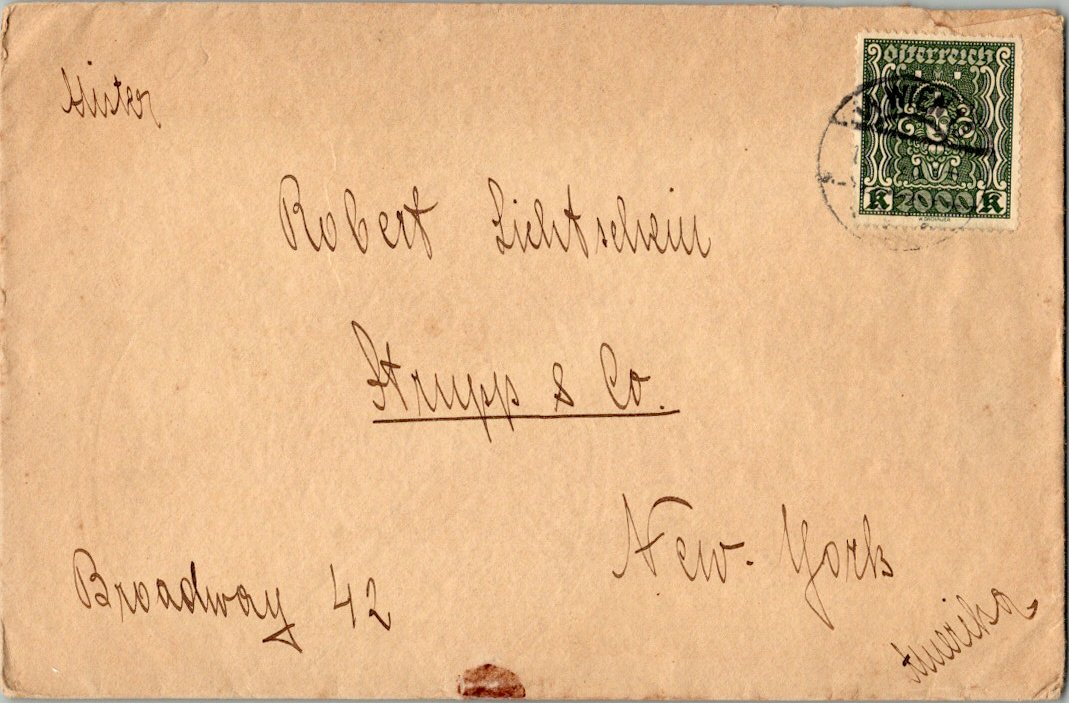 Mister
Österreich
WIEN
K 2000 K
Robert Lichtschein
Strupp & Co.
New-York
Broadway 42
Amerika